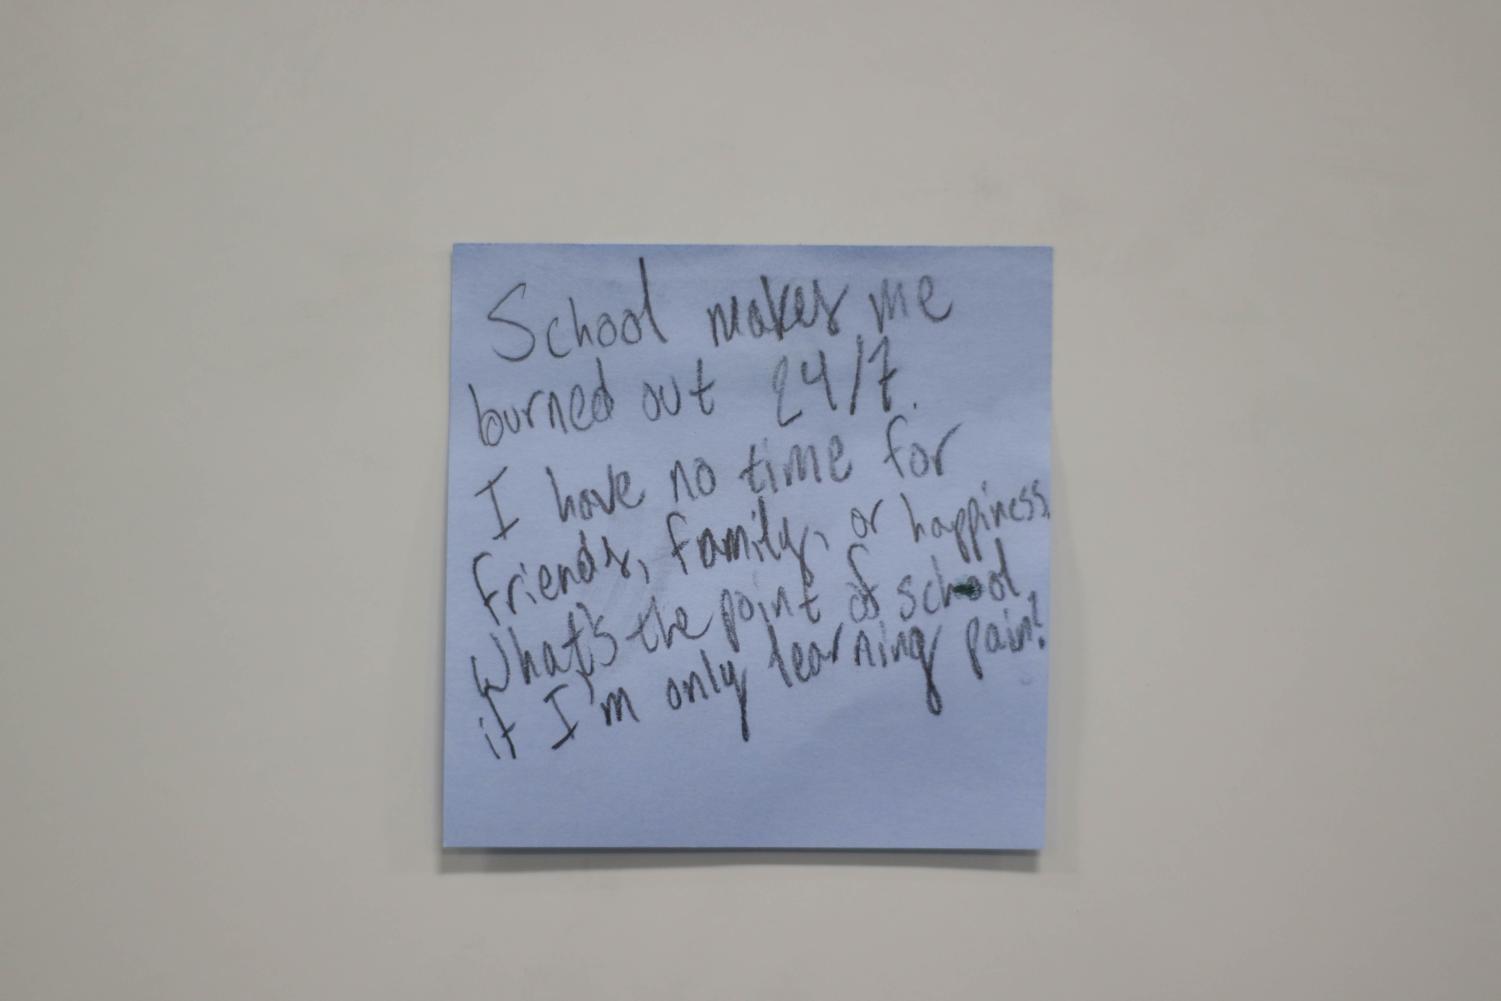 School makes me
burned out 24/7.
I have no time for
friends, family, or happiness.
What's the point of school
if I'm only learning pain?